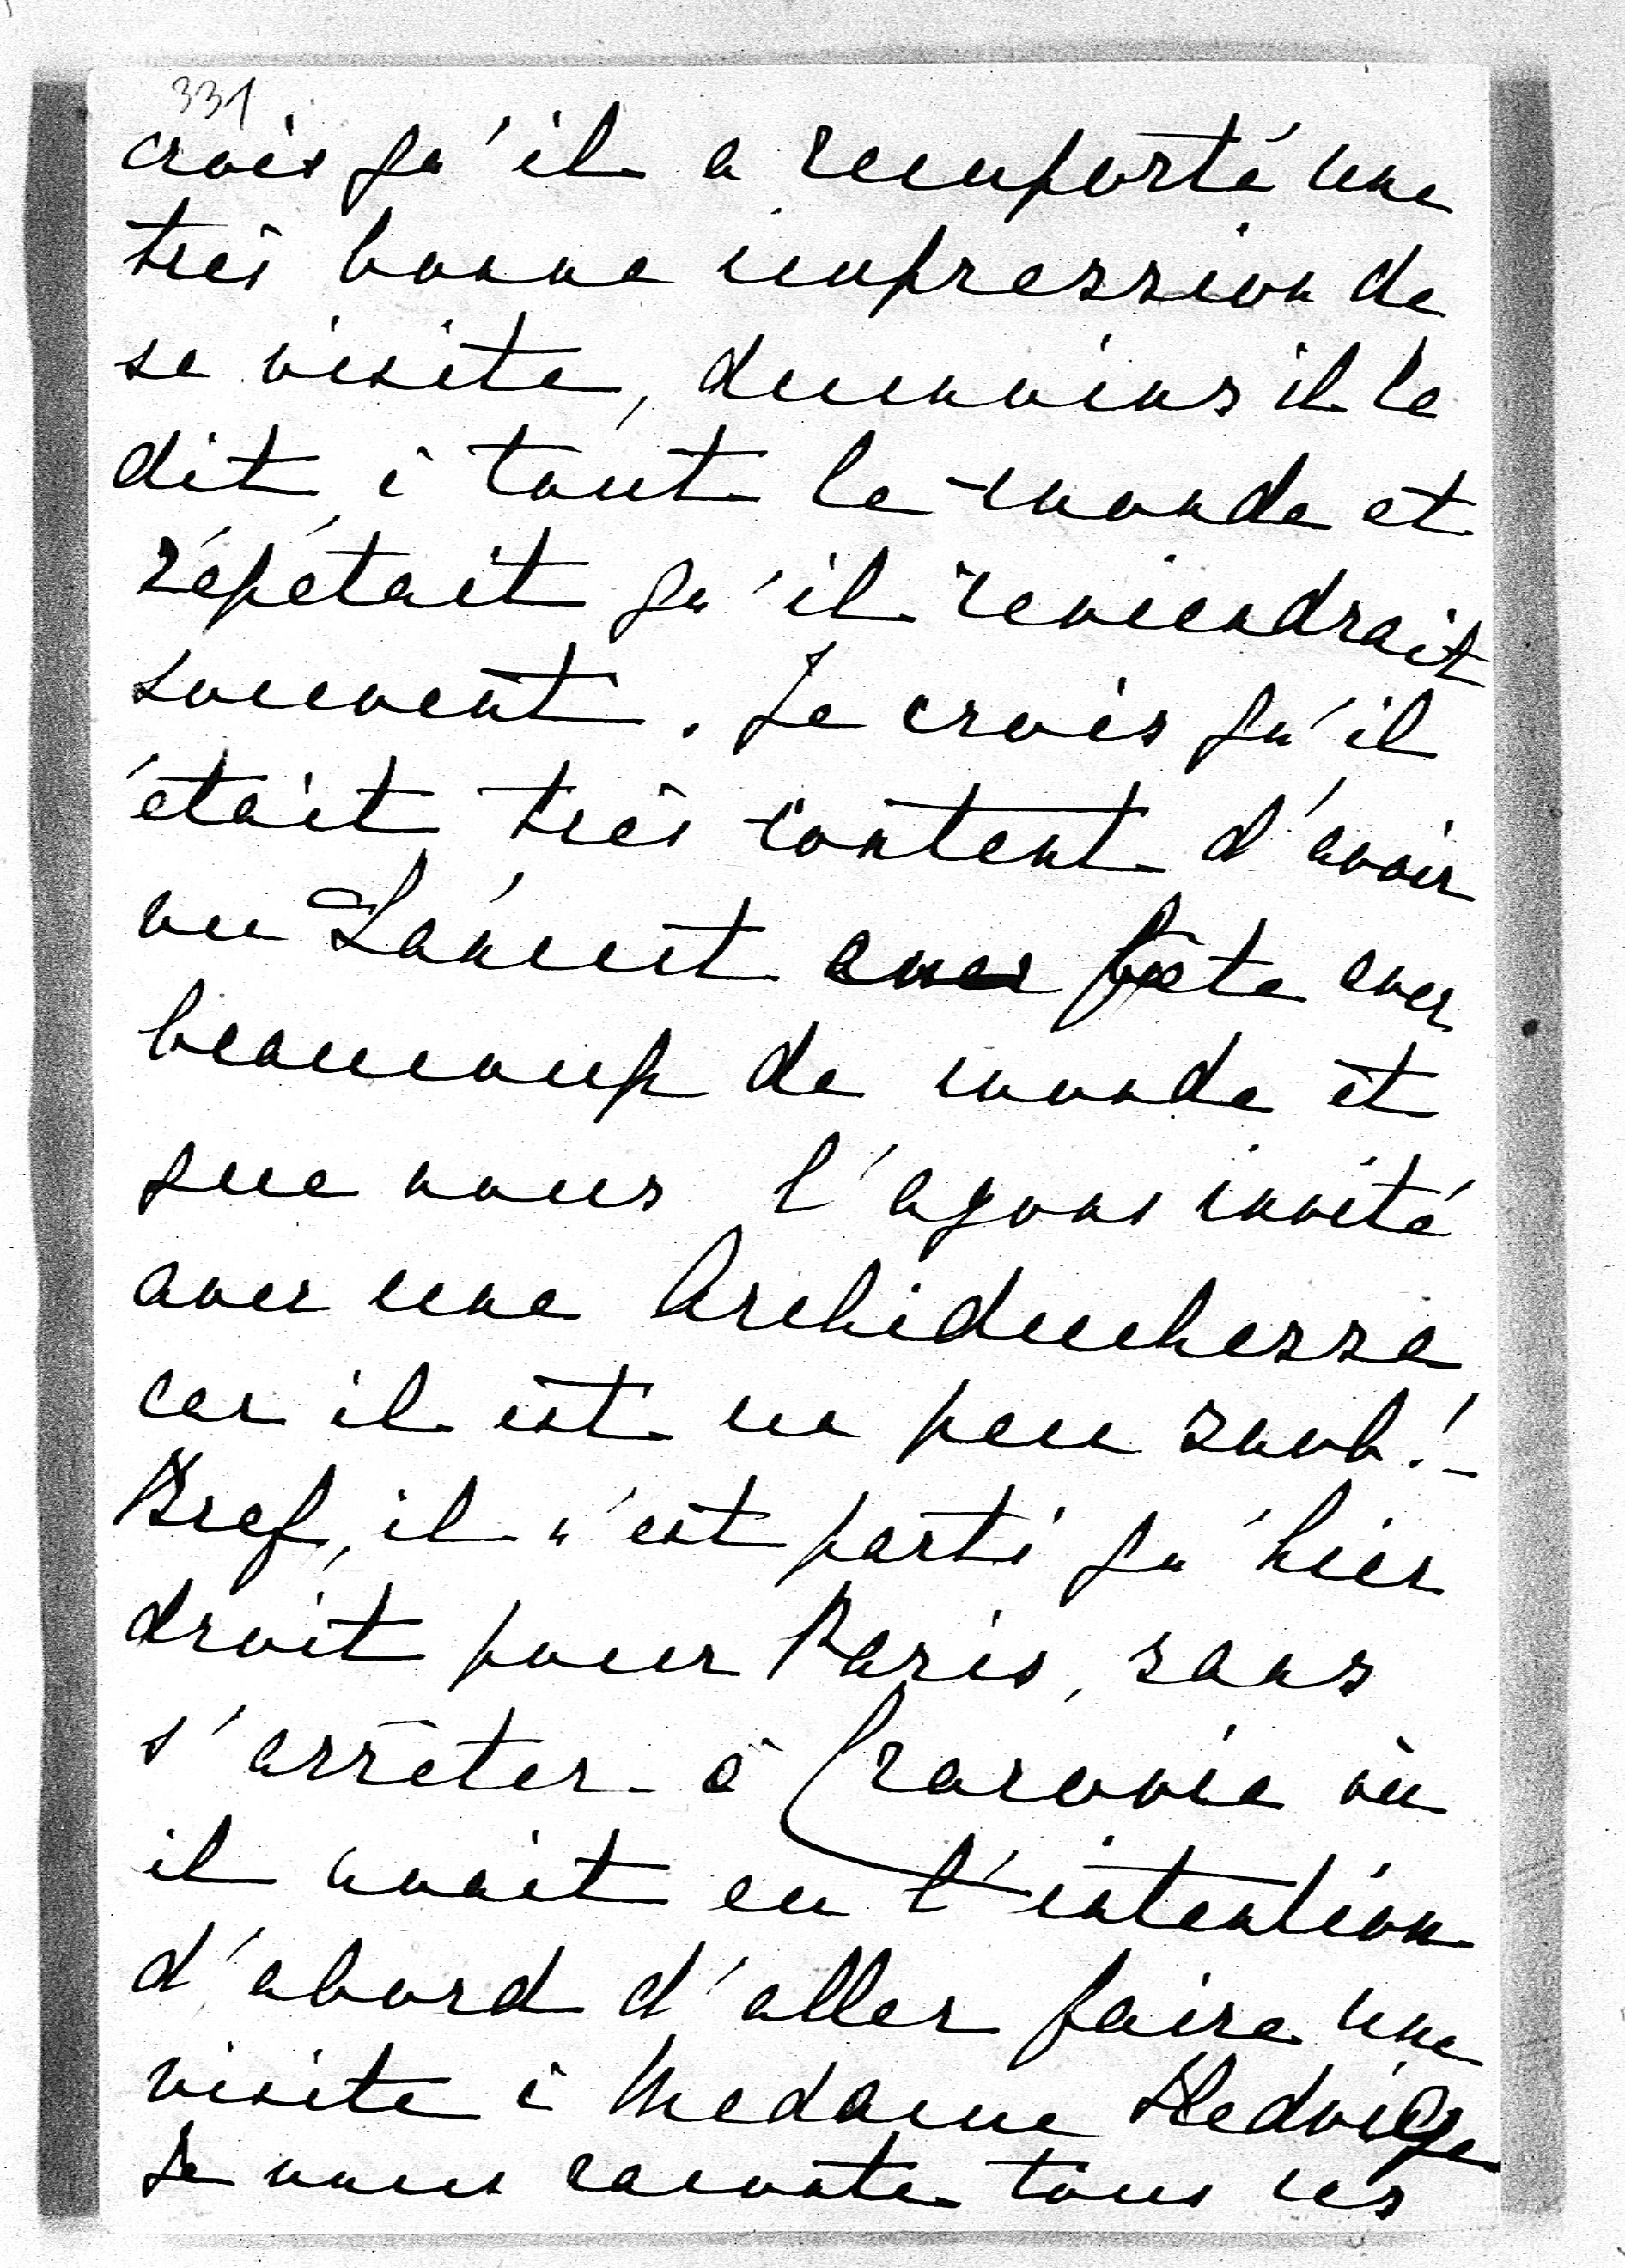 331
crois qu'il a remporté une
très bonne impression de
sa visite, du moins il le
dit à tout le monde et
répétait qu'il reviendrait
souvent. Je crois qu'il
était très content d'avoir
vu Łańcut avec fête avec
beaucoup de monde et
que nous l'ayons invité
avec une Archiduchesse
car il est un peu snob! -
Bref, il n'est parti qu'hier
droit pour Paris, sans
s'arrêter à Cracovie où
il avait eu l'intention
d'abord d'aller faire une
visite à Madame Hedwige
Je vous raconte tous ces